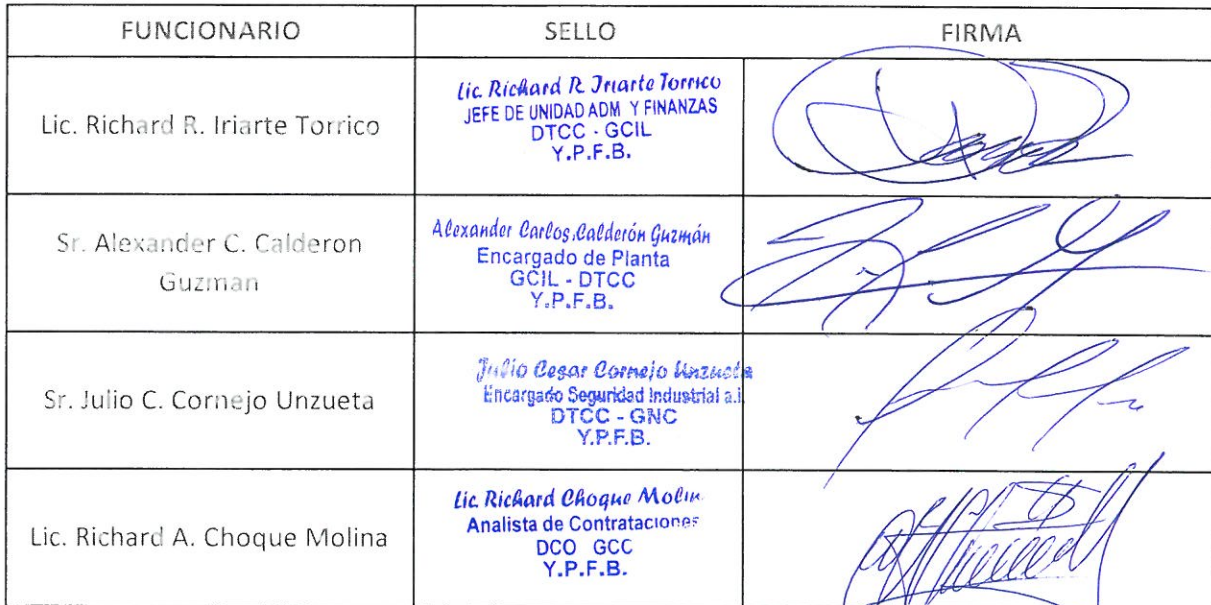 FUNCIONARIO SELLO FIRMA
Lic. Richard R. Iriarte Torrico
Lic. Richard R. Iriarte Torrico
JEFE DE UNIDAD ADM Y FINANZAS
DTCC - GCIL
Y.P.F.B.
Sr. Alexander C. Calderon
Guzman
Alexander Carlos Calderón Guzmán
Encargado de Planta
GCIL - DTCC
Y.P.F.B.
Sr. Julio C. Cornejo Unzueta
Julio Cesar Cornejo Unzueta
Encargado Seguridad Industrial a.i.
DTCC - GNC
Y.P.F.B.
Lic. Richard A. Choque Molina
Lic. Richard Choque Molin
Analista de Contrataciones
DCO GCC
Y.P.F.B.